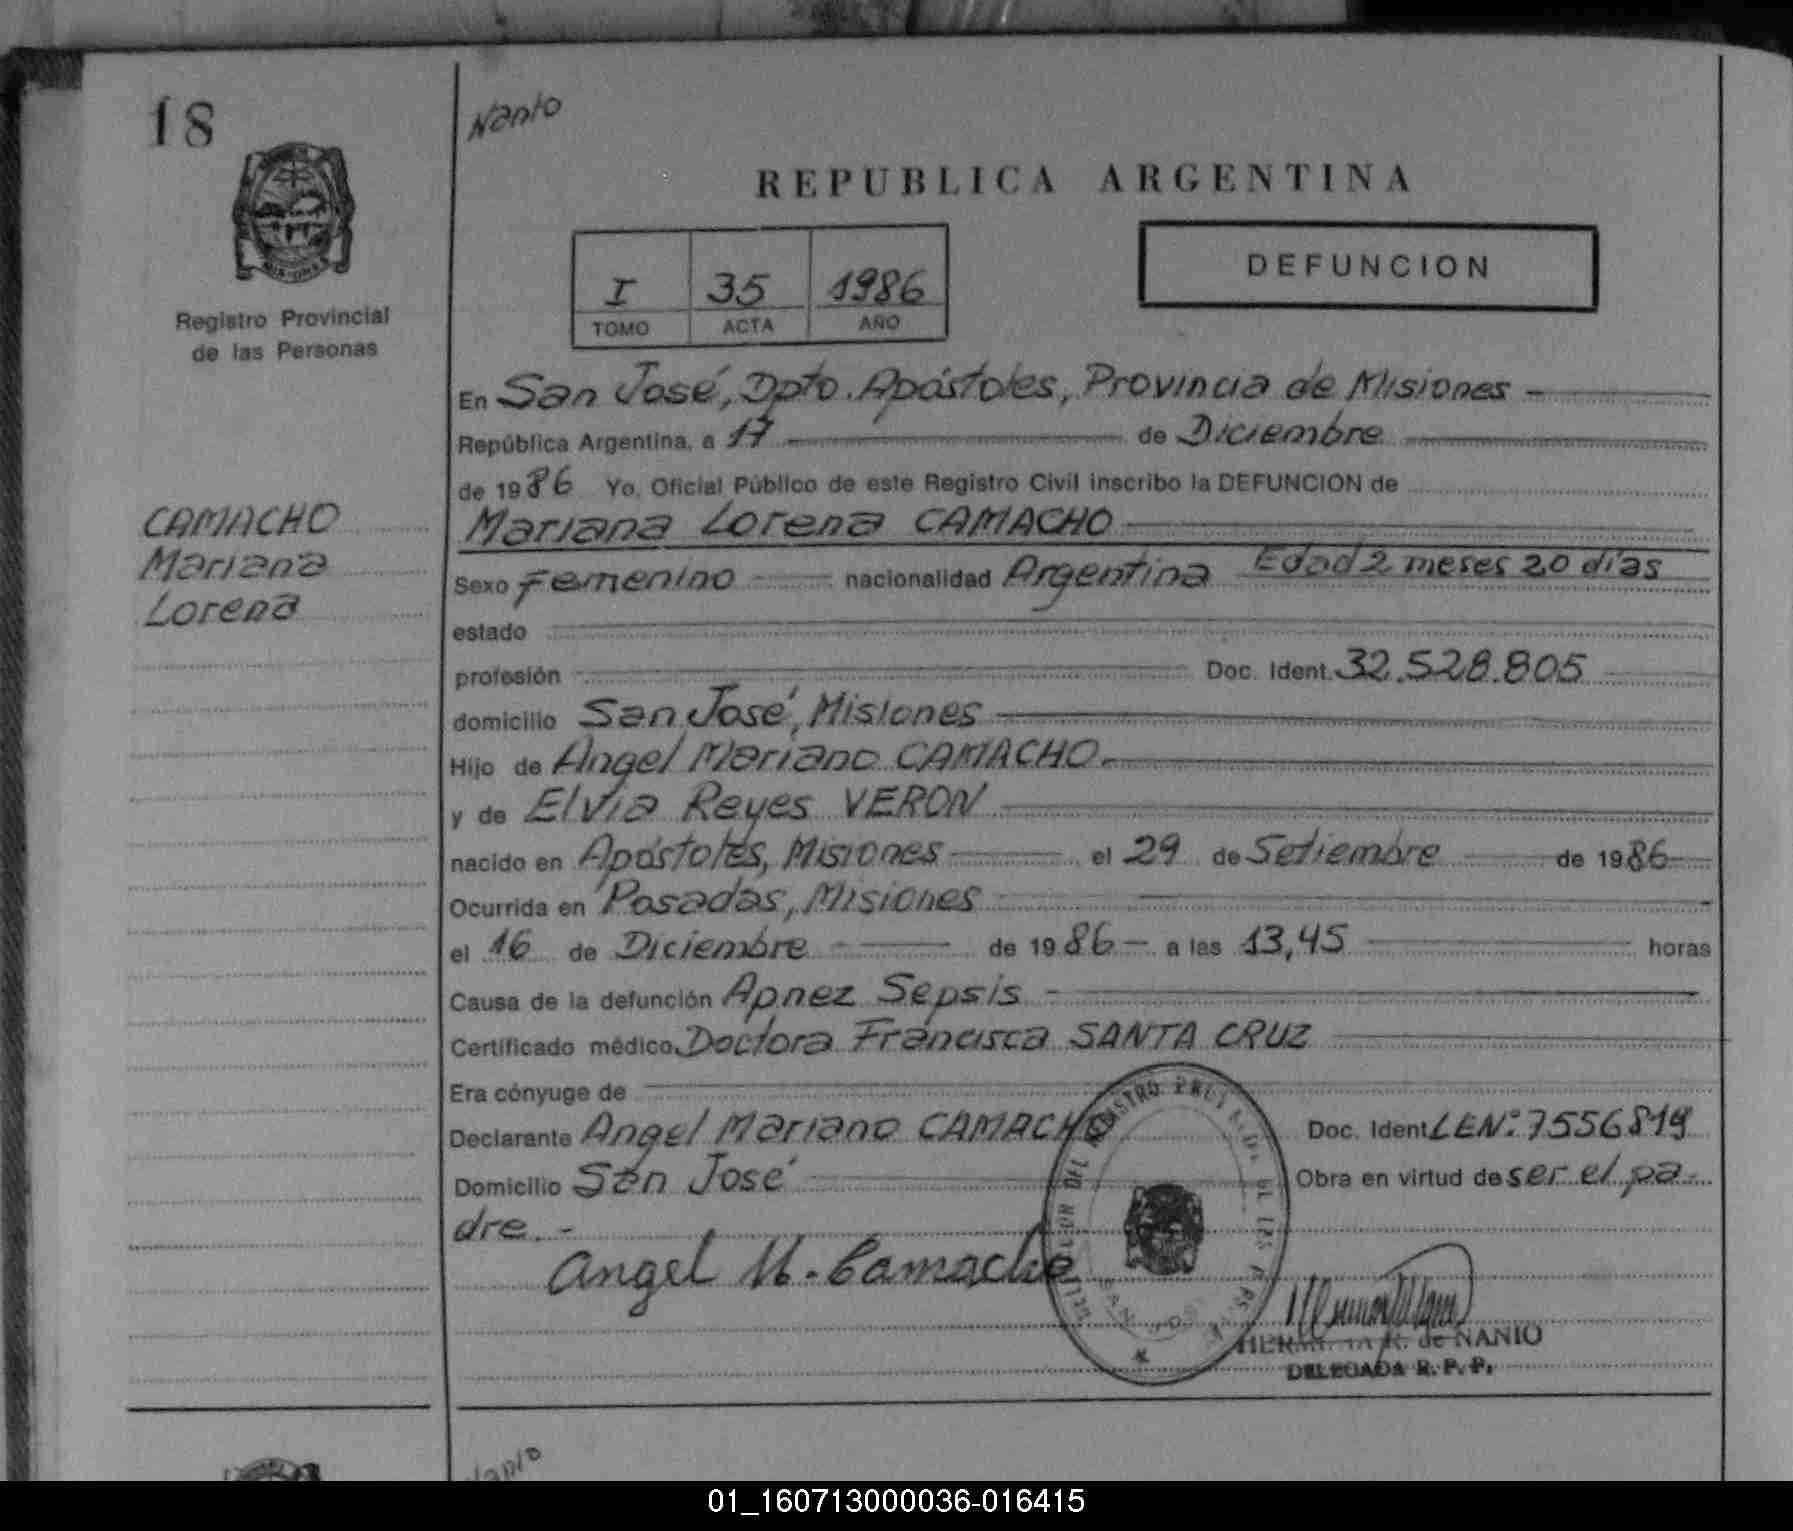 18
Nanio
REPUBLICA ARGENTINA
I 35 1986
TOMO ACTA AÑO
DEFUNCION
Registro Provincial
de las Personas
CAMACHO
Mariana
Lorena
En San José, Dpto. Apóstoles, Provincia de Misiones
República Argentina, a 17 de Diciembre
de 1986 Yo, Oficial Público de este Registro Civil inscribo la DEFUNCION de
Mariana Lorena CAMACHO
Sexo Femenino nacionalidad Argentina Edad 2 meses 20 días
estado
profesión Doc. Ident. 32.528.805
domicilio San José, Misiones
Hijo de Angel Mariano CAMACHO.
y de Elvia Reyes VERON
nacido en Apóstoles, Misiones el 29 de Setiembre de 1986
Ocurrida en Posadas, Misiones
el 16 de Diciembre de 1986 a las 13,45 horas
Causa de la defunción Apnez Sepsis
Certificado médico Doctora Francisca SANTA CRUZ
Era cónyuge de
Declarante Angel Mariano CAMACHO Doc. Ident LEN: 7556819
Domicilio San José Obra en virtud de ser el pa-
dre.-
Angel M. Camacho
de NANIO
DELEGADA R. P. P.
Nanio
01_160713000036-016415